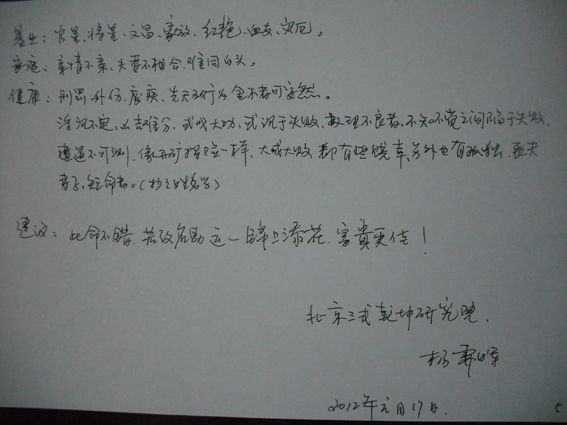 基业：官星、将星、文昌、豪放、红艳、血支、灾厄。
家庭：亲情不亲、夫妻不相合、难同白头。
健康：刑罚、外伤、废疾、先天五行为金水者可安然。
浮沉不定、凶吉难分、或成大功、或沉于失败、数理不良者、不知不觉之间陷于失败、
遭遇不可测、像开矿探险一样、大成大败都有些侥幸、另外也有孤独、丧失
妻子、短命者。
建议：此命不错、若改名助运一锦上添花、富贵更佳！
北京三式乾坤研究院、
杨
2012年元月17日.
5